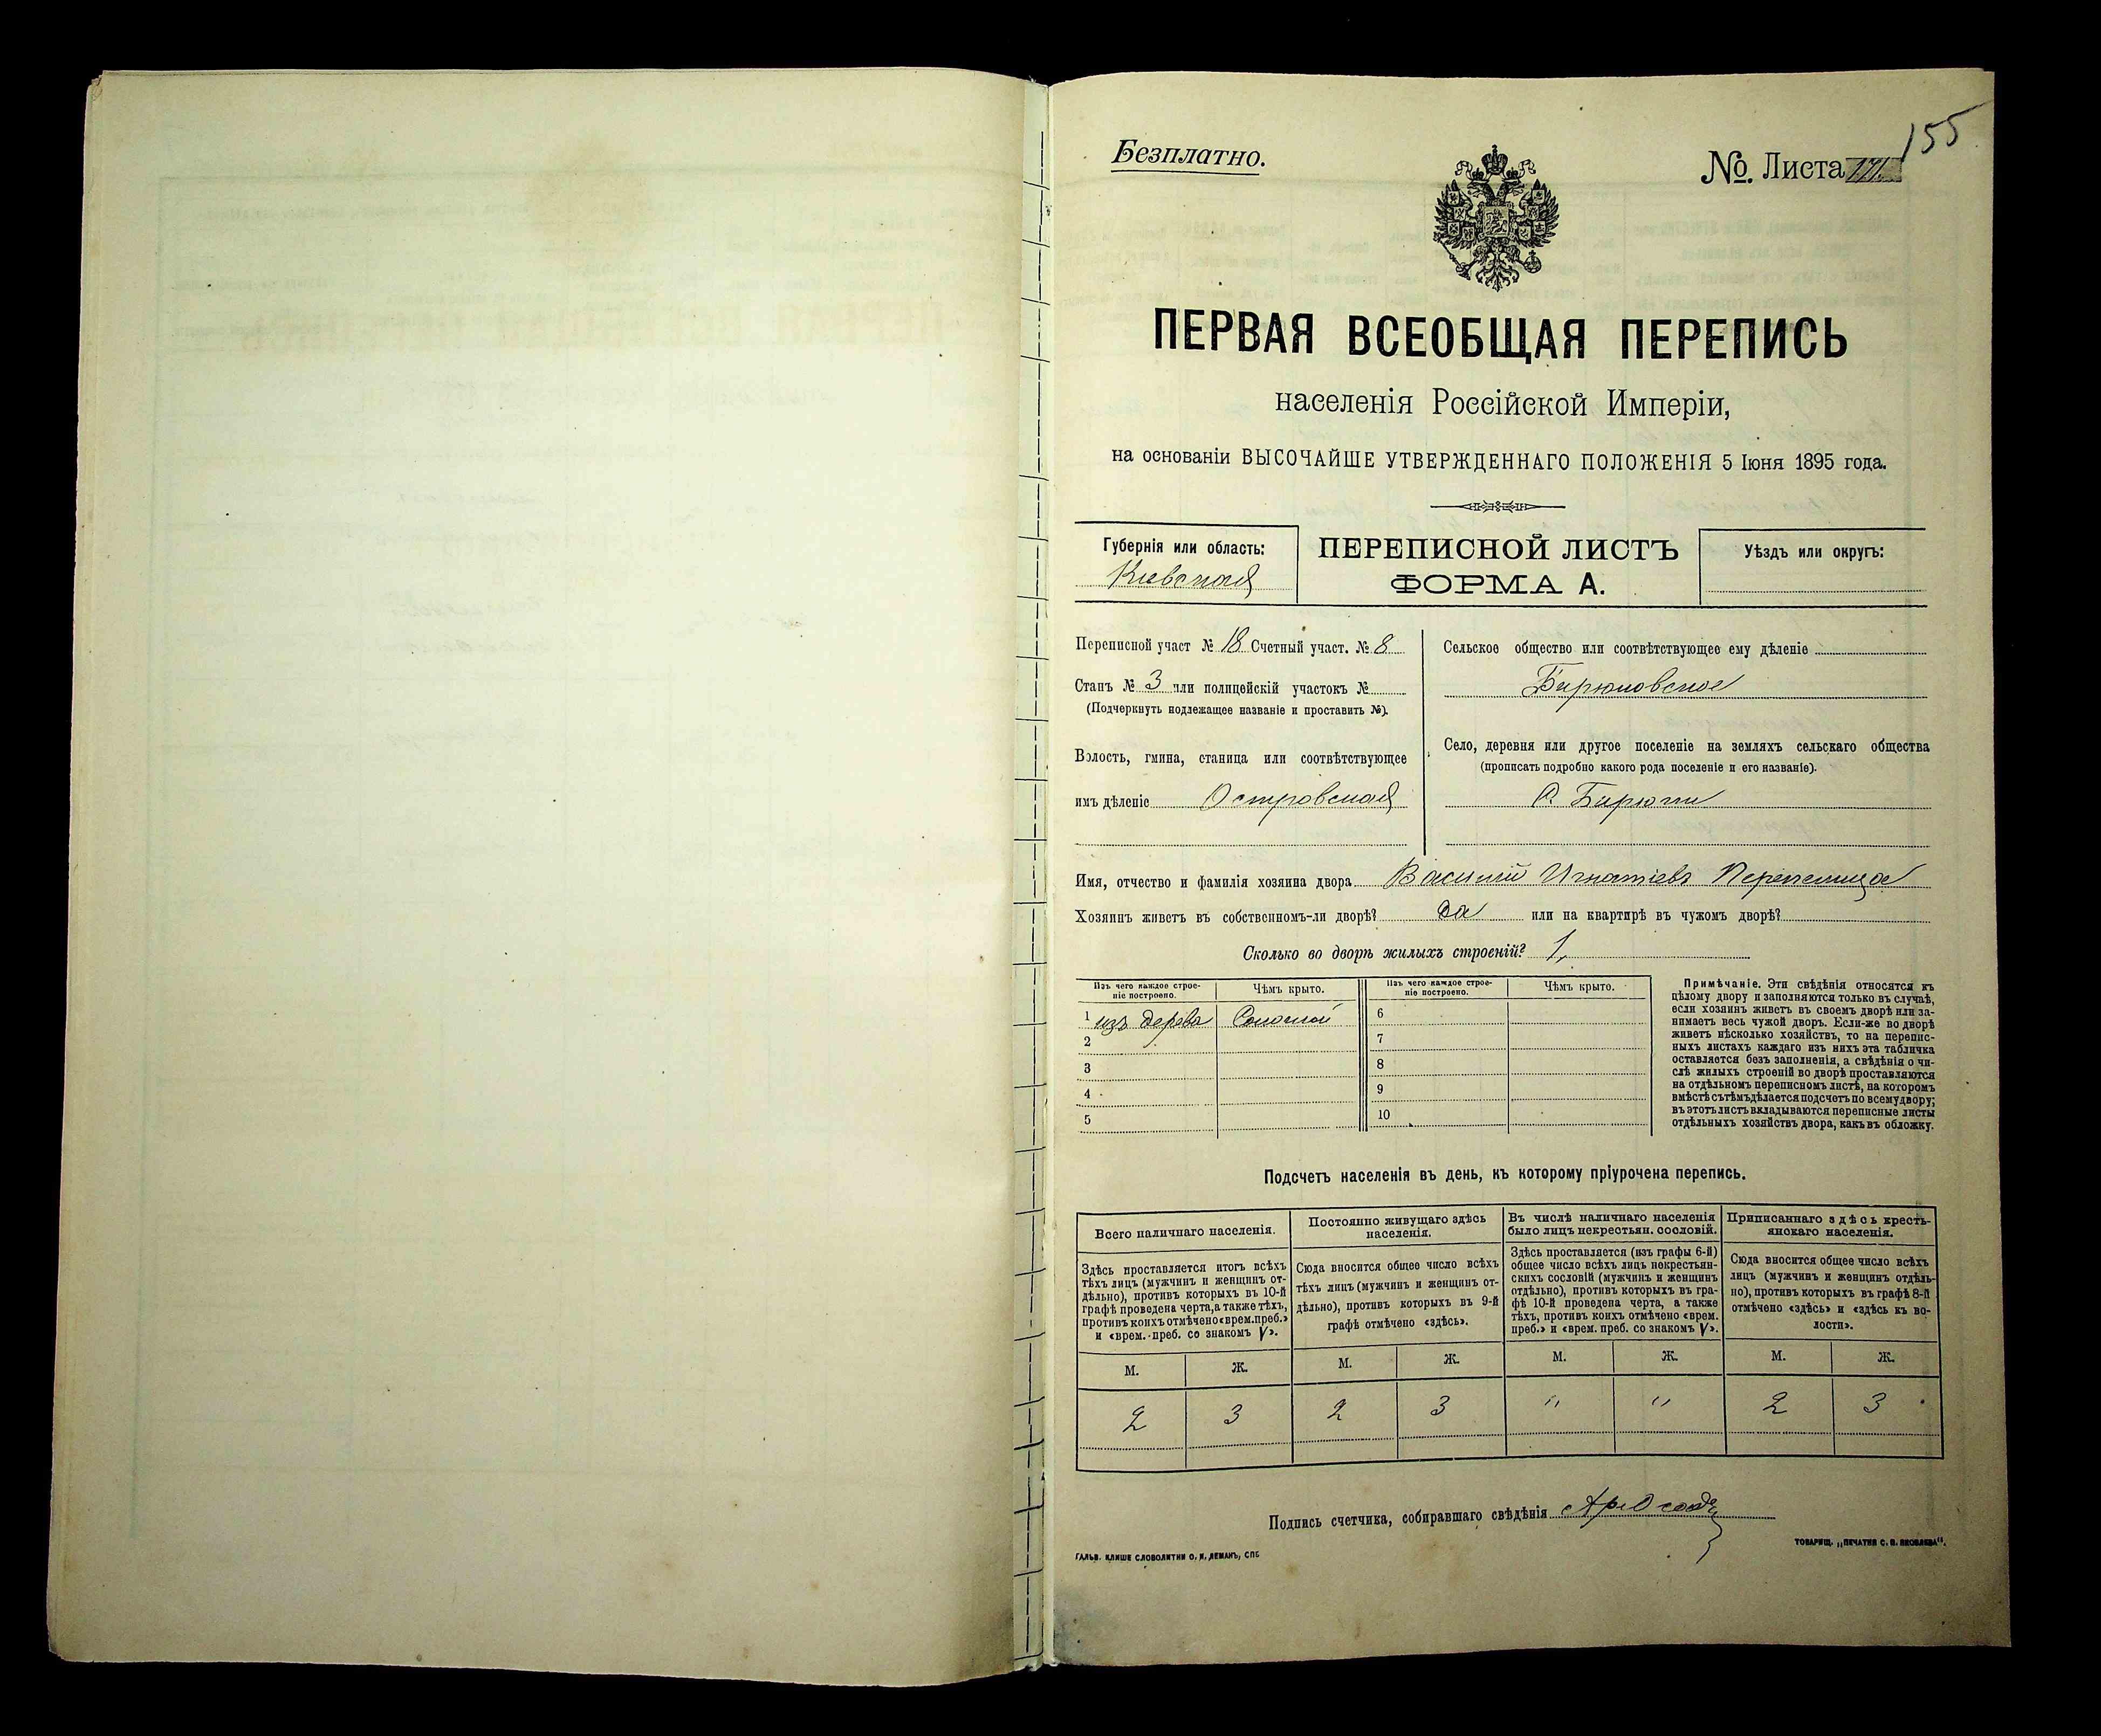 155
Безплатно.
№. Листа 171.
ПЕРВАЯ ВСЕОБЩАЯ ПЕРЕПИСЬ
населенія Россійской Имперіи,
на основаніи ВЫСОЧАЙШЕ УТВЕРЖДЕННАГО ПОЛОЖЕНІЯ 5 Іюня 1895 года.
Губернія или область:
Кіевская
ПЕРЕПИСНОЙ ЛИСТЪ
ФОРМА А.
Уѣздъ или округъ:
Переписной участ № 18 Счетный участ. № 8
Станъ № 3 или полицейскій участокъ №
(Подчеркнуть подлежащее названіе и проставить №).
Волость, гмина, станица или соотвѣтствующее
имъ дѣленіе Островская
Сельское общество или соотвѣтствующее ему дѣленіе
Бирюковское
Село, деревня или другое поселеніе на земляхъ сельскаго общества
(прописать подробно какого рода поселеніе и его названіе).
С. Бирюки
Имя, отчество и фамилія хозяина двора Василій Игнатіевъ Перепелица
Хозяинъ живетъ въ собственномъ-ли дворѣ? да или на квартирѣ въ чужомъ дворѣ?
Сколько во дворѣ жилыхъ строеній? 1,
Изъ чего каждое строе-
ніе построено.
Чѣмъ крыто.
Изъ чего каждое строе-
ніе построено.
Чѣмъ крыто.
1 изъ дерева Соломой
2
3
4
5
6
7
8
9
10
Примѣчаніе. Эти свѣдѣнія относятся къ
цѣлому двору и заполняются только въ случаѣ,
если хозяинъ живетъ въ своемъ дворѣ или за-
нимаетъ весь чужой дворъ. Если-же во дворѣ
живетъ нѣсколько хозяйствъ, то на перепис-
ныхъ листахъ каждаго изъ нихъ эта табличка
оставляется безъ заполненія, а свѣдѣнія о чи-
слѣ жилыхъ строеній во дворѣ проставляются
на отдѣльномъ переписномъ листѣ, на которомъ
вмѣстѣ съ тѣмъ дѣлается подсчетъ по всему двору;
въ этотъ листъ вкладываются переписные листы
отдѣльныхъ хозяйствъ двора, какъ въ обложку.
Подсчетъ населенія въ день, къ которому пріурочена перепись.
Всего наличнаго населенія.
Здѣсь проставляется итогъ всѣхъ
тѣхъ лицъ (мужчинъ и женщинъ от-
дѣльно), противъ которыхъ въ 10-й
графѣ проведена черта, а также тѣхъ,
противъ коихъ отмѣчено «врем. преб.»
и «врем. преб. со знакомъ V».
Постоянно живущаго здѣсь
населенія.
Сюда вносится общее число всѣхъ
тѣхъ лицъ (мужчинъ и женщинъ от-
дѣльно), противъ которыхъ въ 9-й
графѣ отмѣчено «здѣсь».
Въ числѣ наличнаго населенія
было лицъ некрестьян. сословій.
Здѣсь проставляется (изъ графы 6-й)
общее число всѣхъ лицъ некрестьян-
скихъ сословій (мужчинъ и женщинъ
отдѣльно), противъ которыхъ въ гра-
фѣ 10-й проведена черта, а также
тѣхъ, противъ коихъ отмѣчено «врем.
преб.» и «врем. преб. со знакомъ V».
Приписаннаго здѣсь кресть-
янскаго населенія.
Сюда вносится общее число всѣхъ
лицъ (мужчинъ и женщинъ отдѣль-
но), противъ которыхъ въ графѣ 8-й
отмѣчено «здѣсь» и «здѣсь къ во-
лости».
М. Ж. М. Ж. М. Ж. М. Ж.
2 3 2 3 " " 2 3
Подпись счетчика, собиравшаго свѣдѣнія
ГАЛЬВ. КЛИШЕ СЛОВОЛИТНИ О. И. ЛЕМАНЪ, СПБ
ТОВАРИЩ. „ПЕЧАТНЯ С. П. ЯКОВЛЕВА“.